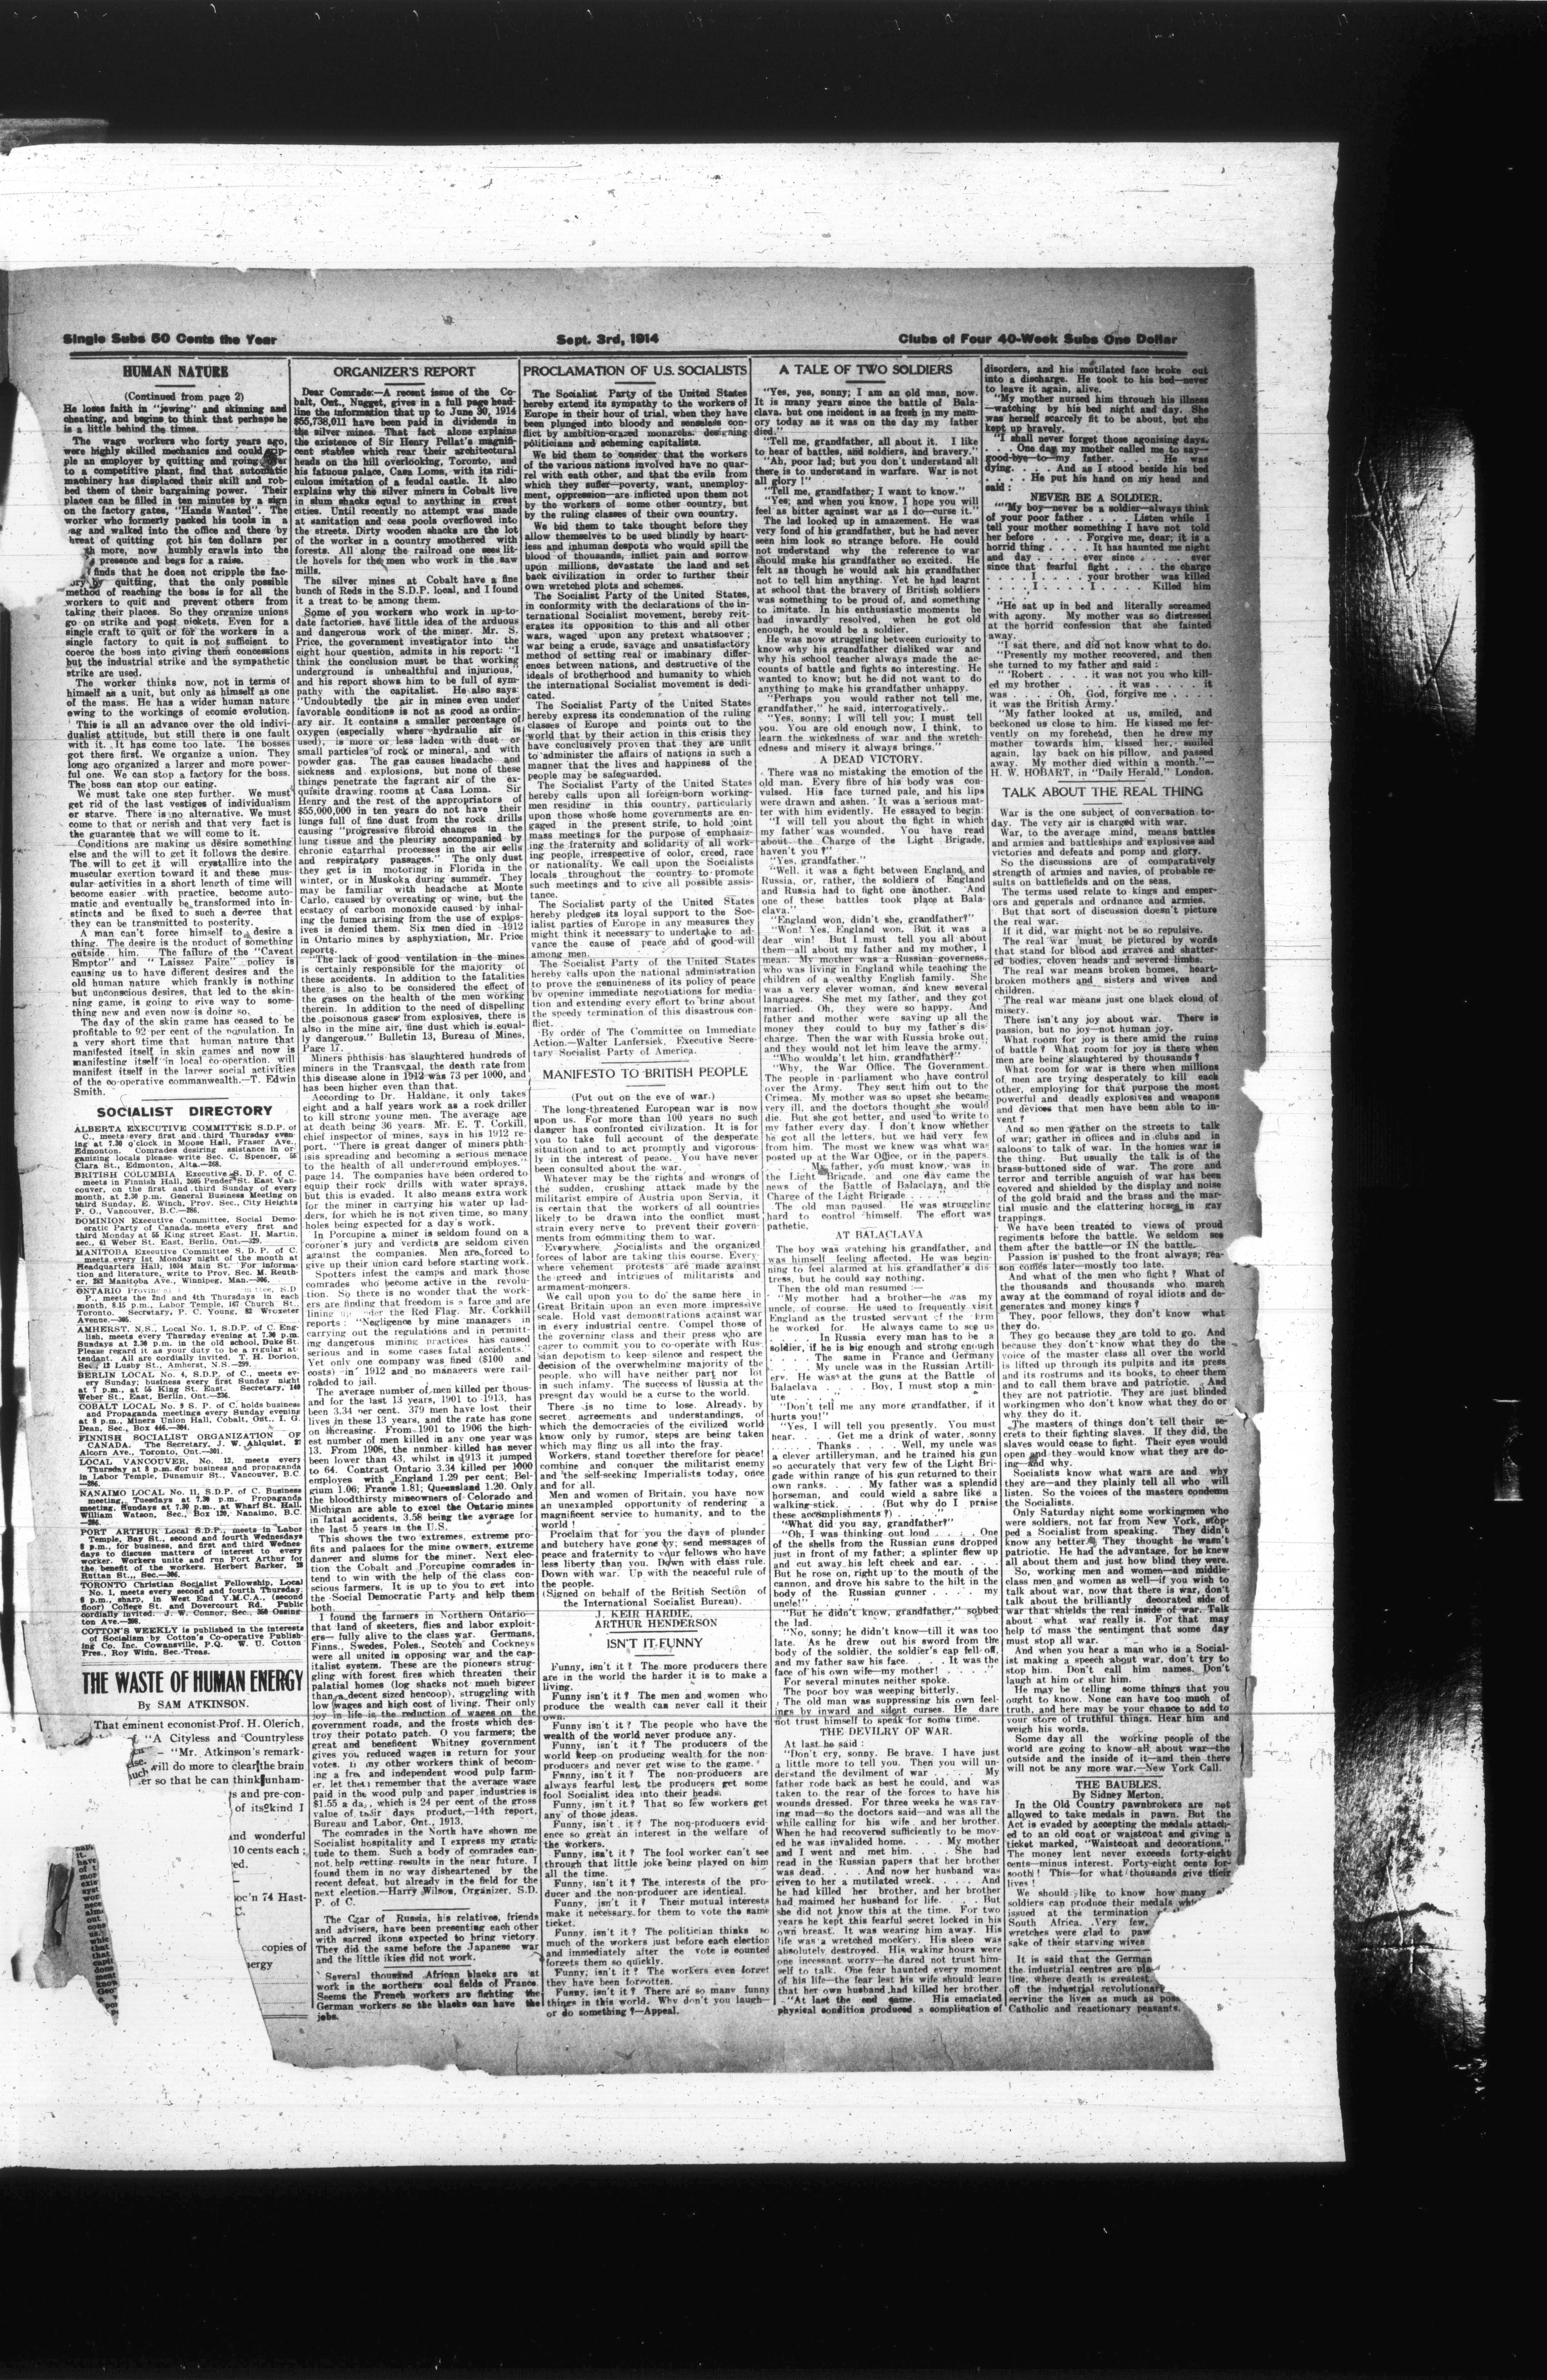 Single Subs 50 Cents the Year
Sept. 3rd, 1914
Clubs of Four 40-Week Subs One Dollar
HUMAN NATURE
(Continued from page 2)
He loses faith in "jewing" and skinning and
cheating, and begins to think that perhaps he
is a little behind the times.
The wage workers who forty years ago,
were highly skilled mechanics and could
ple an employer by quitting and going
to a competitive plant, find that automatic
machinery has displaced their skill and rob-
bed them of their bargaining power. Their
places can be filled in ten minutes by a sign
on the factory gates, "Hands Wanted". The
worker who formerly packed his tools in a
and walked into the office and there by
of quitting got his ten dollars per
more, now humbly crawls into the
presence and begs for a raise.
finds that he does not cripple the fac-
by quitting, that the only possible
method of reaching the boss is for all the
workers to quit and prevent others from
taking their places. So they organize unions
go on strike and post pickets. Even for a
single craft to quit or for the workers in a
single factory to quit is not sufficient to
coerce the boss into giving them concessions
but the industrial strike and the sympathetic
strike are used.
The worker thinks now, not in terms of
himself as a unit, but only as himself as one
of the mass. He has a wider human nature
owing to the workings of ecomic evolution.
This is all an advance over the old indivi-
dualist attitude, but still there is one fault
with it. It has come too late. The bosses
got there first. We organize a union. They
long ago organized a larger and more power-
ful one. We can stop a factory for the boss.
The boss can stop our eating.
We must take one step further. We must
get rid of the last vestiges of individualism
or starve. There is no alternative. We must
come to that or perish and that very fact is
the guarantee that we will come to it.
Conditions are making us desire something
else and the will to get it follows the desire.
The will to get it will crystallize into the
muscular exertion toward it and these mus-
cular activities in a short length of time will
become easier with practice, become auto-
matic and eventually be transformed into in-
stincts and be fixed to such a degree that
they can be transmitted to posterity.
A man can't force himself to desire a
thing. The desire is the product of something
outside him. The failure of the "Caveat
Emptor" and " Laissez Faire" policy is
causing us to have different desires and the
old human nature which frankly is nothing
but unconscious desires, that led to the skin-
ning game, is going to give way to some-
thing new and even now is doing so.
The day of the skin game has ceased to be
profitable to 92 per cent of the population. In
a very short time that human nature that
manifested itself in skin games and now is
manifesting itself in local co-operation, will
manifest itself in the larger social activities
of the co-operative commanwealth.—T. Edwin
Smith.
SOCIALIST DIRECTORY
ALBERTA EXECUTIVE COMMITTEE S.D.P. of
C., meets every first and third Thursday even-
ing at 7.30 o'clock in Moose Hall, Fraser Ave.,
Edmonton. Comrades desiring asistance in or-
ganizing locals please write Sec. C. Spencer, 56
Clara St., Edmonton, Alta.—268.
BRITISH COLUMBIA Executive S. D. P. of C.
meets in Finnish Hall, 2605 Pender St. East Van-
couver, on the first and third Sunday of every
month, at 2.30 p.m. General Business Meeting on
third Sunday, E. Winch, Prov. Sec., City Heights
P. O., Vancouver, B.C.—286.
DOMINION Executive Committee, Social Demo-
cratic Party of Canada, meets every first and
third Monday at 55 King street East. H. Martin,
sec., 61 Weber St. East, Berlin, Ont.—279.
MANITOBA Executive Committee S. D. P. of C.
meets every 1st Monday night of the month at
Headquarters Hall, 1034 Main St. For informa-
tion and literature, write to Prov. Sec. M. Reuth-
er, 282 Manitoba Ave., Winnipeg, Man.—306.
ONTARIO
P., meets the 2nd and 4th Thursdays in each
month, 8.15 p.m., Labor Temple, 167 Church St.,
Toronto. Secretary, P. C. Young, 82 Wroxeter
Avenue.—305.
AMHERST, N.S., Local No. 1, S.D.P. of C. Eng-
lish, meets every Thursday evening at 7.30 p.m.
Sundays at 2.30 p.m. in the old school, Duke St.
Please regard it as your duty to be a regular at-
tendant. All are cordially invited. T. H. Dorion,
Sec., 12 Lusby St., Amherst, N.S.—299.
BERLIN LOCAL No. 4, S.D.P. of C., meets ev-
ery Sunday; business every first Sunday night
at 7 p.m., at 55 King St. East. Secretary, 140
Weber St., East, Berlin, Ont.—236.
COBALT LOCAL No. 9 S. P. of C. holds business
and Propaganda meetings every Sunday evening
at 8 p.m., Miners Union Hall, Cobalt, Ont., I. G.
Dean, Sec., Box 446.—304.
FINNISH SOCIALIST ORGANIZATION OF
CANADA. The Secretary, J. W. Ahlquist, 27
Alcorn Ave., Toronto, Ont.—301.
LOCAL VANCOUVER, No. 12, meets every
Thursday at 8 p.m. for business and propaganda
in Labor Temple, Dunsmuir St., Vancouver, B.C.
—286.
NANAIMO LOCAL No. 11, S.D.P. of C. Business
meeting, Tuesdays at 7.30 p.m. Propaganda
meeting, Sundays at 7.30 p.m. at Wharf St. Hall.
William Watson, Sec., Box 120, Nanaimo, B.C.
—286.
PORT ARTHUR Local S.D.P., meets in Labor
Temple, Bay St., second and fourth Wednesdays
8 p.m., for business, and first and third Wednes-
days to discuss matters of interest to every
worker. Workers unite and run Port Arthur for
the benefit of the workers. Herbert Barker, 28
Ruttan St.,, Sec.—306.
TORONTO Christian Socialist Fellowship, Local
No. 1, meets every second and fourth Thursday,
8 p.m., sharp, in West End Y.M.C.A., (second
floor) College St. and Dovercourt Rd. Public
cordially invited. J. W. Connor, Sec., 350 Ossing-
ton Ave.—298.
COTTON'S WEEKLY is published in the interests
of Socialism by Cotton's Co-operative Publish-
ing Co. Inc. Cowansville, P.Q. W. U. Cotton
Pres., Roy Wiltn, Sec.-Treas.
THE WASTE OF HUMAN ENERGY
By SAM ATKINSON.
That eminent economist Prof. H. Olerich,
"A Cityless and Countryless
"Mr. Atkinson's remark-
will do more to clear the brain
so that he can think unham-
s and pre-con-
of its kind I
and wonderful
10 cents each ;
oc'n 74 Hast-
copies of
ORGANIZER'S REPORT
Dear Comrade:—A recent issue of the Co-
balt, Ont., Nugget, gives in a full page head-
line the information that up to June 30, 1914
$55,738,011 have been paid in dividends in
the silver mines. That fact alone explains
the existence of Sir Henry Pellat's magnifi-
cent stables which rear their architectural
heads on the hill overlooking, Toronto, and
his fatuous palace, Casa Loma, with its ridi-
culous imitation of a feudal castle. It also
explains why the silver miners in Cobalt live
in slum shacks equal to anything in great
cities. Until recently no attempt was made
at sanitation and cess pools overflowed into
the streets. Dirty wooden shacks are the lot
of the worker in a country smothered with
forests. All along the railroad one sees lit-
tle hovels for the men who work in the saw
mills.
The silver mines at Cobalt have a fine
bunch of Reds in the S.D.P. local, and I found
it a treat to be among them.
Some of you workers who work in up-to-
date factories, have little idea of the arduous
and dangerous work of the miner. Mr. S.
Price, the government investigator into the
eight hour question, admits in his report: "I
think the conclusion must be that working
underground is unhealthful and injurious,"
and his report shows him to be full of sym-
pathy with the capitalist. He also says:
"Undoubtedly the air in mines even under
favorable conditions is not as good as ordin-
ary air. It contains a smaller percentage of
oxygen (especially where hydraulic air is
used), is more or less laden with dust or
small particles of rock or mineral, and with
powder gas. The gas causes headache and
sickness and explosions, but none of these
things penetrate the fragrant air of the ex-
quisite drawing rooms at Casa Loma. Sir
Henry and the rest of the appropriators of
$55,000,000 in ten years do not have their
lungs full of fine dust from the rock drills
causing "progressive fibroid changes in the
lung tissue and the pleurisy accompanied by
chronic catarrhal processes in the air cells
and respiratory passages." The only dust
they get is in motoring in Florida in the
winter, or in Muskoka during summer. They
may be familiar with headache at Monte
Carlo, caused by overeating or wine, but the
ecstacy of carbon monoxide caused by inhal-
ing the fumes arising from the use of explos-
ives is denied them. Six men died in 1912
in Ontario mines by asphyxiation, Mr. Price
reports.
"The lack of good ventilation in the mines
is certainly responsible for the majority of
these accidents. In addition to the fatalities
there is also to be considered the effect of
the gases on the health of the men working
therein. In addition to the need of dispelling
the poisonous gases from explosives, there is
also in the mine air, fine dust which is equal-
ly dangerous." Bulletin 13, Bureau of Mines,
Page 17.
Miners phthisis has slaughtered hundreds of
miners in the Transvaal, the death rate from
this disease alone in 1912 was 73 per 1000, and
has been higher even than that.
According to Dr. Haldane, it only takes
eight and a half years work as a rock driller
to kill strong young men. The average age
at death being 36 years. Mr. E. T. Corkill,
chief inspector of mines, says in his 1912 re-
port. "There is great danger of miners phth-
isis spreading and becoming a serious menace
to the health of all underground employes."
page 14. The companies have been ordered to
equip their rock drills with water sprays,
but this is evaded. It also means extra work
for the miner in carrying his water up lad-
ders, for which he is not given time, so many
holes being expected for a day's work.
In Porcupine a miner is seldom found on a
coroner's jury and verdicts are seldom given
against the companies. Men are forced to
give up their union card before starting work.
Spotters infest the camps and mark those
comrades who become active in the revolu-
tion. So there is no wonder that the work-
ers are finding that freedom is a farce and are
lining up under the Red Flag. Mr. Corkhill
reports : "Negligence by mine managers in
carrying out the regulations and in permitt-
ing dangerous mining practices has caused
serious and in some cases fatal accidents."
Yet only one company was fined ($100 and
costs) in 1912 and no managers were rail-
roaded to jail.
The average number of men killed per thous-
and for the last 13 years, 1901 to 1913, has
been 3.34 per cent. 379 men have lost their
lives in these 13 years, and the rate has gone
on increasing. From 1901 to 1906 the high-
est number of men killed in any one year was
13. From 1908, the number killed has never
been lower than 43, whilst in 1913 it jumped
to 64. Contrast Ontario 3.34 killed per 1000
employes with England 1.29 per cent; Bel-
gium 1.06; France 1.81; Queensland 1.20. Only
the bloodthirsty mineowners of Colorado and
Michigan are able to excel the Ontario mines
in fatal accidents, 3.58 being the average for
the last 5 years in the U.S.
This shows the two extremes, extreme pro-
fits and palaces for the mine owners, extreme
danger and slums for the miner. Next elec-
tion the Cobalt and Porcupine comrades in-
tend to win with the help of the class con-
scious farmers. It is up to you to get into
the Social Democratic Party and help them
both.
I found the farmers in Northern Ontario—
that land of skeeters, flies and labor exploit-
ers— fully alive to the class war. Germans,
Finns., Swedes, Poles., Scotch and Cockneys
were all united in opposing war and the cap-
italist system. These are the pioneers strug-
gling with forest fires which threaten their
palatial homes (log shacks not much bigger
than a decent sized hencoop), struggling with
low wages and high cost of living. Their only
joy in life is the reduction of wages on the
government roads, and the frosts which des-
troy their potato patch. O you farmers; the
great and beneficent Whitney government
gives you reduced wages is return for your
votes. If any other workers think of becom-
ing a free and independent wood pulp farm-
er, let them remember that the average wage
paid in the wood pulp and paper industries is
$1.55 a day, which is 24 per cent of the gross
value of their days product,—14th report,
Bureau and Labor, Ont., 1913.
The comrades in the North have shown me
Socialist hospitality and I express my grati-
tude to them. Such a body of comrades can-
not help getting results in the near future. I
found them in no way disheartened by the
recent defeat, but already in the field for the
next election—Harry Wilson, Organizer, S.D.
P. of C.
The Czar of Russia, his relatives, friends
and advisers, have been presenting each other
with sacred ikons expected to bring victory.
They did the same before the Japanese war
and the little ikies did not work.
Several thousand African blacks are at
work in the northern coal fields of France.
Seems the French workers are fighting the
German workers so the blacks can have the
jobs.
PROCLAMATION OF U.S. SOCIALISTS
The Socialist Party of the United States
hereby extend its sympathy to the workers of
Europe in their hour of trial, when they have
been plunged into bloody and senseless con-
flict by ambition-crazed monarchs, designing
politicians and scheming capitalists.
We bid them to consider that the workers
of the various nations involved have no quar-
rel with each other, and that the evils from
which they suffer—poverty, want, unemploy-
ment, oppression—are inflicted upon them not
by the workers of some other country, but
by the ruling classes of their own country.
We bid them to take thought before they
allow themselves to be used blindly by heart-
less and inhuman despots who would spill the
blood of thousands, inflict pain and sorrow
upon millions, devastate the land and set
back civilization in order to further their
own wretched plots and schemes.
The Socialist Party of the United States,
in conformity with the declarations of the in-
ternational Socialist movement, hereby reit-
erates its opposition to this and all other
wars, waged upon any pretext whatsoever ;
war being a crude, savage and unsatisfactory
method of setting real or imabinary differ-
ences between nations, and destructive of the
ideals of brotherhood and humanity to which
the international Socialist movement is dedi-
cated.
The Socialist Party of the United States
hereby express its condemnation of the ruling
classes of Europe and points out to the
world that by their action in this crisis they
have conclusively proven that they are unfit
to administer the affairs of nations in such a
manner that the lives and happiness of the
people may be safeguarded.
The Socialist Party of the United States
hereby calls upon all foreign-born working-
men residing in this country, particularly
upon those whose home governments are en-
gaged in the present strife, to hold joint
mass meetings for the purpose of emphasiz-
ing the fraternity and solidarity of all work-
ing people, irrespective of color, creed, race
or nationality. We call upon the Socialists
locals throughout the country to promote
such meetings and to give all possible assis-
tance.
The Socialist party of the United States
hereby pledges its loyal support to the Soc-
ialist parties of Europe in any measures they
might think it necessary to undertake to ad-
vance the cause of peace and of good-will
among men.
The Socialist Party of the United States
hereby calls upon the national administration
to prove the genuineness of its policy of peace
by opening immediate negotiations for media-
tion and extending every effort to bring about
the speedy termination of this disastrous con-
flict.
By order of The Committee on Immediate
Action.—Walter Lanfersiek, Executive Secre-
tary Socialist Party of America.
MANIFESTO TO BRITISH PEOPLE
(Put out on the eve of war.)
The long-threatened European war is now
upon us. For more than 100 years no such
danger has confronted civilization. It is for
you to take full account of the desperate
situation and to act promptly and vigorous-
ly in the interest of peace. You have never
been consulted about the war.
Whatever may be the rights and wrongs of
the sudden, crushing attack made by the
militarist empire of Austria upon Servia, it
is certain that the workers of all countries
likely to be drawn into the conflict must
strain every nerve to prevent their govern-
ments from commiting them to war.
Everywhere Socialists and the organized
forces of labor are taking this course. Every-
where vehement protests are made against
the greed and intrigues of militarists and
armament-mongers.
We call upon you to do the same here in
Great Britain upon an even more impressive
scale. Hold vast demonstrations against war
in every industrial centre. Compel those of
the governing class and their press who are
eager to commit you to co-operate with Rus-
sian depotism to keep silence and respect the
decision of the overwhelming majority of the
people, who will have neither part nor lot
in such infamy. The success of Russia at the
present day would be a curse to the world.
There is no time to lose. Already, by
secret agreements and understandings, of
which the democracies of the civilized world
know only by rumor, steps are being taken
which may fling us all into the fray.
Workers, stand together therefore for peace!
combine and conquer the militarist enemy
and the self-seeking Imperialists today, once
and for all.
Men and women of Britain, you have now
an unexampled opportunity of rendering a
magnificent service to humanity, and to the
world !
Proclaim that for you the days of plunder
and butchery have gone by; send messages of
peace and fraternity to your fellows who have
less liberty than you. Down with class rule.
Down with war. Up with the peaceful rule of
the people.
(Signed on behalf of the British Section of
the International Socialist Bureau).
J. KEIR HARDIE,
ARTHUR HENDERSON
ISN'T IT FUNNY
Funny, isn't it? The more producers there
are in the world the harder it is to make a
living.
Funny isn't it? The men and women who
produce the wealth can never call it their
own.
Funny, isn't it? The people who have the
wealth of the world never produce any.
Funny, isn't it? The producers of the
world keep on producing wealth for the non-
producers and never get wise to the game.
Funny, isn't it? The non-producers are
always fearful lest the producers get some
fool Socialist idea into their heads.
Funny, isn't it? That so few workers get
any of those ideas.
Funny, isn't it? The non-producers evid-
ence so great an interest in the welfare of
the workers.
Funny, isn't it? The fool worker can't see
through that little joke being played on him
all the time.
Funny, isn't it? The interests of the pro-
ducer and the non-producer are identical.
Funny, isn't it? Their mutual interests
make it necessary for them to vote the same
ticket.
Funny, isn't it? The politician thinks so
much of the workers just before each election
and immediately after the vote is counted
forgets them so quickly.
Funny, isn't it? The workers even forget
they have been forgotten.
Funny, isn't it? There are so many funny
things in this world. Why don't you laugh—
or do something?—Appeal.
A TALE OF TWO SOLDIERS
"Yes, yes, sonny; I am an old man, now.
It is many years since the battle of Bala-
clava. but one incident is as fresh in my mem-
ory today as it was on the day my father
died."
"Tell me, grandfather, all about it. I like
to hear of battles, and soldiers, and bravery."
"Ah, poor lad; but you don't understand all
there is to understand in warfare. War is not
all glory !"
"Tell me, grandfather; I want to know."
"Yes; and when you know, I hope you will
feel as bitter against war as I do—curse it."
The lad looked up in amazement. He was
very fond of his grandfather, but he had never
seen him look so strange before. He could
not understand why the reference to war
should make his grandfather so excited. He
felt as though he would ask his grandfather
not to tell him anything. Yet he had learnt
at school that the bravery of British soldiers
was something to be proud of, and something
to imitate. In his enthusiastic moments he
had inwardly resolved, when he got old
enough, he would be a soldier.
He was now struggling between curiosity to
know why his grandfather disliked war and
why his school teacher always made the ac-
counts of battle and fights so interesting. He
wanted to know; but he did not want to do
anything to make his grandfather unhappy.
"Perhaps you would rather not tell me,
grandfather," he said, interrogatively.
"Yes, sonny; I will tell you; I must tell
you. You are old enough now, I think, to
learn the wickedness of war and the wretch-
edness and misery it always brings."
A DEAD VICTORY.
There was no mistaking the emotion of the
old man. Every fibre of his body was con-
vulsed. His face turned pale, and his lips
were drawn and ashen. It was a serious mat-
ter with him evidently. He essayed to begin:
"I will tell you about the fight in which
my father was wounded. You have read
about the Charge of the Light Brigade,
haven't you?"
"Yes, grandfather."
"Well, it was a fight between England and
Russia, or, rather, the soldiers of England
and Russia had to fight one another. And
one of these battles took place at Bala-
clava."
"England won, didn't she, grandfather?"
"Won! Yes, England won. But it was a
dear win! But I must tell you all about
them—all about my father and my mother, I
mean. My mother was a Russian governess,
who was living in England while teaching the
children of a wealthy English family. She
was a very clever woman, and knew several
languages. She met my father, and they got
married. Oh, they were so happy. And
father and mother were saving up all the
money they could to buy my father's dis-
charge. Then the war with Russia broke out,
and they would not let him leave the army."
"Who wouldn't let him, grandfather?"
"Why, the War Office. The Government.
The people in parliament who have control
over the Army. They sent him out to the
Crimea. My mother was so upset she became
very ill, and the doctors thought she would
die. But she got better, and used to write to
my father every day. I don't know whether
he got all the letters, but we had very few
from him. The most we knew was what was
posted up at the War Office, or in the papers.
My father, you must know, was in
the Light Brigade, and one day came the
news of the Battle of Balaclava, and the
Charge of the Light Brigade . . . .
The old man paused. He was struggling
hard to control himself. The effort was
pathetic.
AT BALACLAVA
The boy was watching his grandfather, and
was himself feeling affected. He was begin-
ning to feel alarmed at his grandfather's dis-
tress, but he could say nothing.
Then the old man resumed :—
"My mother had a brother—he was my
uncle, of course. He used to frequently visit
England as the trusted servant of the firm
he worked for. He always came to see us
. . . . In Russia every man has to be a
soldier, if he is big enough and strong enough
. . . . The same in France and Germany
. . . . My uncle was in the Russian Artill-
ery. He was at the guns at the Battle of
Balaclava . . . . Boy, I must stop a min-
ute . . . .
"Don't tell me any more grandfather, if it
hurts you!"
"Yes, I will tell you presently. You must
hear. . . . Get me a drink of water, sonny
. . . . Thanks . . . . Well, my uncle was
a clever artilleryman, and he trained his gun
so accurately that very few of the Light Bri-
gade within range of his gun returned to their
own ranks. . . . My father was a splendid
horseman, and could wield a sabre like a
walking-stick. . . . (But why do I praise
these accomplishments?) . . . ."
"What did you say, grandfather?"
"Oh, I was thinking out loud . . . . One
of the shells from the Russian guns dropped
just in front of my father; a splinter flew up
and cut away his left cheek and ear. . . .
But he rose on, right up to the mouth of the
cannon, and drove his sabre to the hilt in the
body of the Russian gunner . . . . my
uncle!" . . . .
"But he didn't know, grandfather," sobbed
the lad.
"No, sonny; he didn't know—till it was too
late. As he drew out his sword from the
body of the soldier, the soldier's cap fell off,
and my father saw his face. . . . It was the
face of his own wife—my mother! . . . ."
For several minutes neither spoke.
The poor boy was weeping bitterly.
The old man was suppressing his own feel-
ings by inward and silent curses. He dare
not trust himself to speak for some time.
THE DEVILRY OF WAR.
At last he said :
"Don't cry, sonny. Be brave. I have just
a little more to tell you. Then you will un-
derstand the devilment of war . . . . My
father rode back as best he could, and was
taken to the rear of the forces to have his
wounds dressed. For three weeks he was rav-
ing mad—so the doctors said—and was all the
while calling for his wife and her brother.
When he had recovered sufficiently to be mov-
ed he was invalided home. . . . My mother
and I went and met him. . . . She had
read in the Russian papers that her brother
was dead. . . . And now her husband was
given to her a mutilated wreck. . . . And
he had killed her brother, and her brother
had maimed her husband for life. . . . But
she did not know this at the time. For two
years he kept this fearful secret locked in his
own breast. It was wearing him away. His
life was a wretched mockery. His sleep was
absolutely destroyed. His waking hours were
one incessant worry—he dared not trust him-
self to talk. One fear haunted every moment
of his life—the fear lest his wife should learn
that her own husband had killed her brother.
"At last the end came. His emaciated
physical condition produced a complication of
disorders, and his mutilated face broke out
into a discharge. He took to his bed—never
to leave it again, alive.
"My mother nursed him through his illness
—watching by his bed night and day. She
was herself scarcely fit to be about, but she
kept up bravely.
"I shall never forget those agonising days.
. . . . One day my mother called me to say—
good-bye—to—my father. . . . He was
dying. . . . And as I stood beside his bed
. . . . He put his hand on my head and
said :
NEVER BE A SOLDIER.
"'My boy—never be a soldier—always think
of your poor father . . . . Listen while I
tell your mother something I have not told
her before . . . . Forgive me, dear; it is a
horrid thing . . . . It has haunted me night
and day . . . . ever since . . . . ever
since that fearful fight . . . . the charge
. . . . I . . . . your brother was killed
. . . . I . . . . I . . . . Killed him
. . . .
"He sat up in bed and literally screamed
with agony. My mother was so distressed
at the horrid confession that she fainted
away.
"I sat there, and did not know what to do.
"Presently my mother recovered, and then
she turned to my father and said :
"'Robert . . . . it was not you who kill-
ed my brother . . . . it was . . . . it
was . . . . Oh, God, forgive me . . . .
it was the British Army.'
"My father looked at us, smiled, and
beckoned us close to him. He kissed me fer-
vently on my forehead, then he drew my
mother towards him, kissed her, smiled
again, lay back on his pillow, and passed
away. My mother died within a month."—
H. W. HOBART, in "Daily Herald," London.
TALK ABOUT THE REAL THING
War is the one subject of conversation to-
day. The very air is charged with war.
War, to the average mind, means battles
and armies and battleships and explosives and
victories and defeats and pomp and glory.
So the discussions are of comparatively
strength of armies and navies, of probable re-
sults on battlefields and on the seas.
The terms used relate to kings and emper-
ors and generals and ordnance and armies.
But that sort of discussion doesn't picture
the real war.
If it did, war might not be so repulsive.
The real war must be pictured by words
that stand for blood and graves and shatter-
ed bodies, cloven heads and severed limbs.
The real war means broken homes, heart-
broken mothers and sisters and wives and
children.
The real war means just one black cloud of
misery.
There isn't any joy about war. There is
passion, but no joy—not human joy.
What room for joy is there amid the ruins
of battle? What room for joy is there when
men are being slaughtered by thousands?
What room for war is there when millions
of men are trying desperately to kill each
other, employing for that purpose the most
powerful and deadly explosives and weapons
and devices that men have been able to in-
vent ?
And so men gather on the streets to talk
of war; gather in offices and in clubs and in
saloons to talk of war. In the homes war is
the thing. But usually the talk is of the
brass-buttoned side of war. The gore and
terror and terrible anguish of war has been
covered and shielded by the display and noise
of the gold braid and the brass and the mar-
tial music and the clattering horses in gay
trappings.
We have been treated to views of proud
regiments before the battle. We seldom see
them after the battle—or IN the battle.
Passion is pushed to the front always; rea-
son comes later—mostly too late.
And what of the men who fight? What of
the thousands and thousands who march
away at the command of royal idiots and de-
generates and money kings?
They, poor fellows, they don't know what
they do.
They go because they are told to go. And
because they don't know what they do the
voice of the master class all over the world
is lifted up through its pulpits and its press
and its rostrums and its books, to cheer them
and to call them brave and patriotic. And
they are not patriotic. They are just blinded
workingmen who don't know what they do or
why they do it.
The masters of things don't tell their se-
crets to their fighting slaves. If they did, the
slaves would cease to fight. Their eyes would
open and they would know what they are do-
ing—and why.
Socialists know what wars are and why
they are—and they plainly tell all who will
listen. So the voices of the masters condemn
the Socialists.
Only Saturday night some workingmen who
were soldiers, not far from New York, stop-
ped a Socialist from speaking. They didn't
know any better. They thought he wasn't
patriotic. He had the advantage, for he knew
all about them and just how blind they were.
So, working men and women—and middle-
class men and women as well—if you wish to
talk about war, now that there is war, don't
talk about the brilliantly decorated side of
war that shields the real inside of war. Talk
about what war really is. For that may
help to mass the sentiment that some day
must stop all war.
And when you hear a man who is a Social-
ist making a speech about war, don't try to
stop him. Don't call him names. Don't
laugh at him or slur him.
He may be telling some things that you
ought to know. None can have too much of
truth, and here may be your chance to add to
your store of truthful things. Hear him and
weigh his words.
Some day all the working people of the
world are going to know all about war—the
outside and the inside of it—and then there
will not be any more war.—New York Call.
THE BAUBLES.
By Sidney Merton.
In the Old Country pawnbrokers are not
allowed to take medals in pawn. But the
Act is evaded by accepting the medals attach-
ed to an old coat or waistcoat and giving a
ticket marked, "Waistcoat and decorations."
The money lent never exceeds forty-eight
cents—minus interest. Forty-eight cents for-
sooth! This—for what thousands give their
lives !
We should like to know how many
soldiers can produce their medals
issued at the termination
South Africa. Very few,
wretches were glad to
sake of their starving wives
It is said that the German
the industrial centres are
line, where death is greatest,
off the industrial revolutionar
serving the lives as much as
Catholic and reactionary peasants.